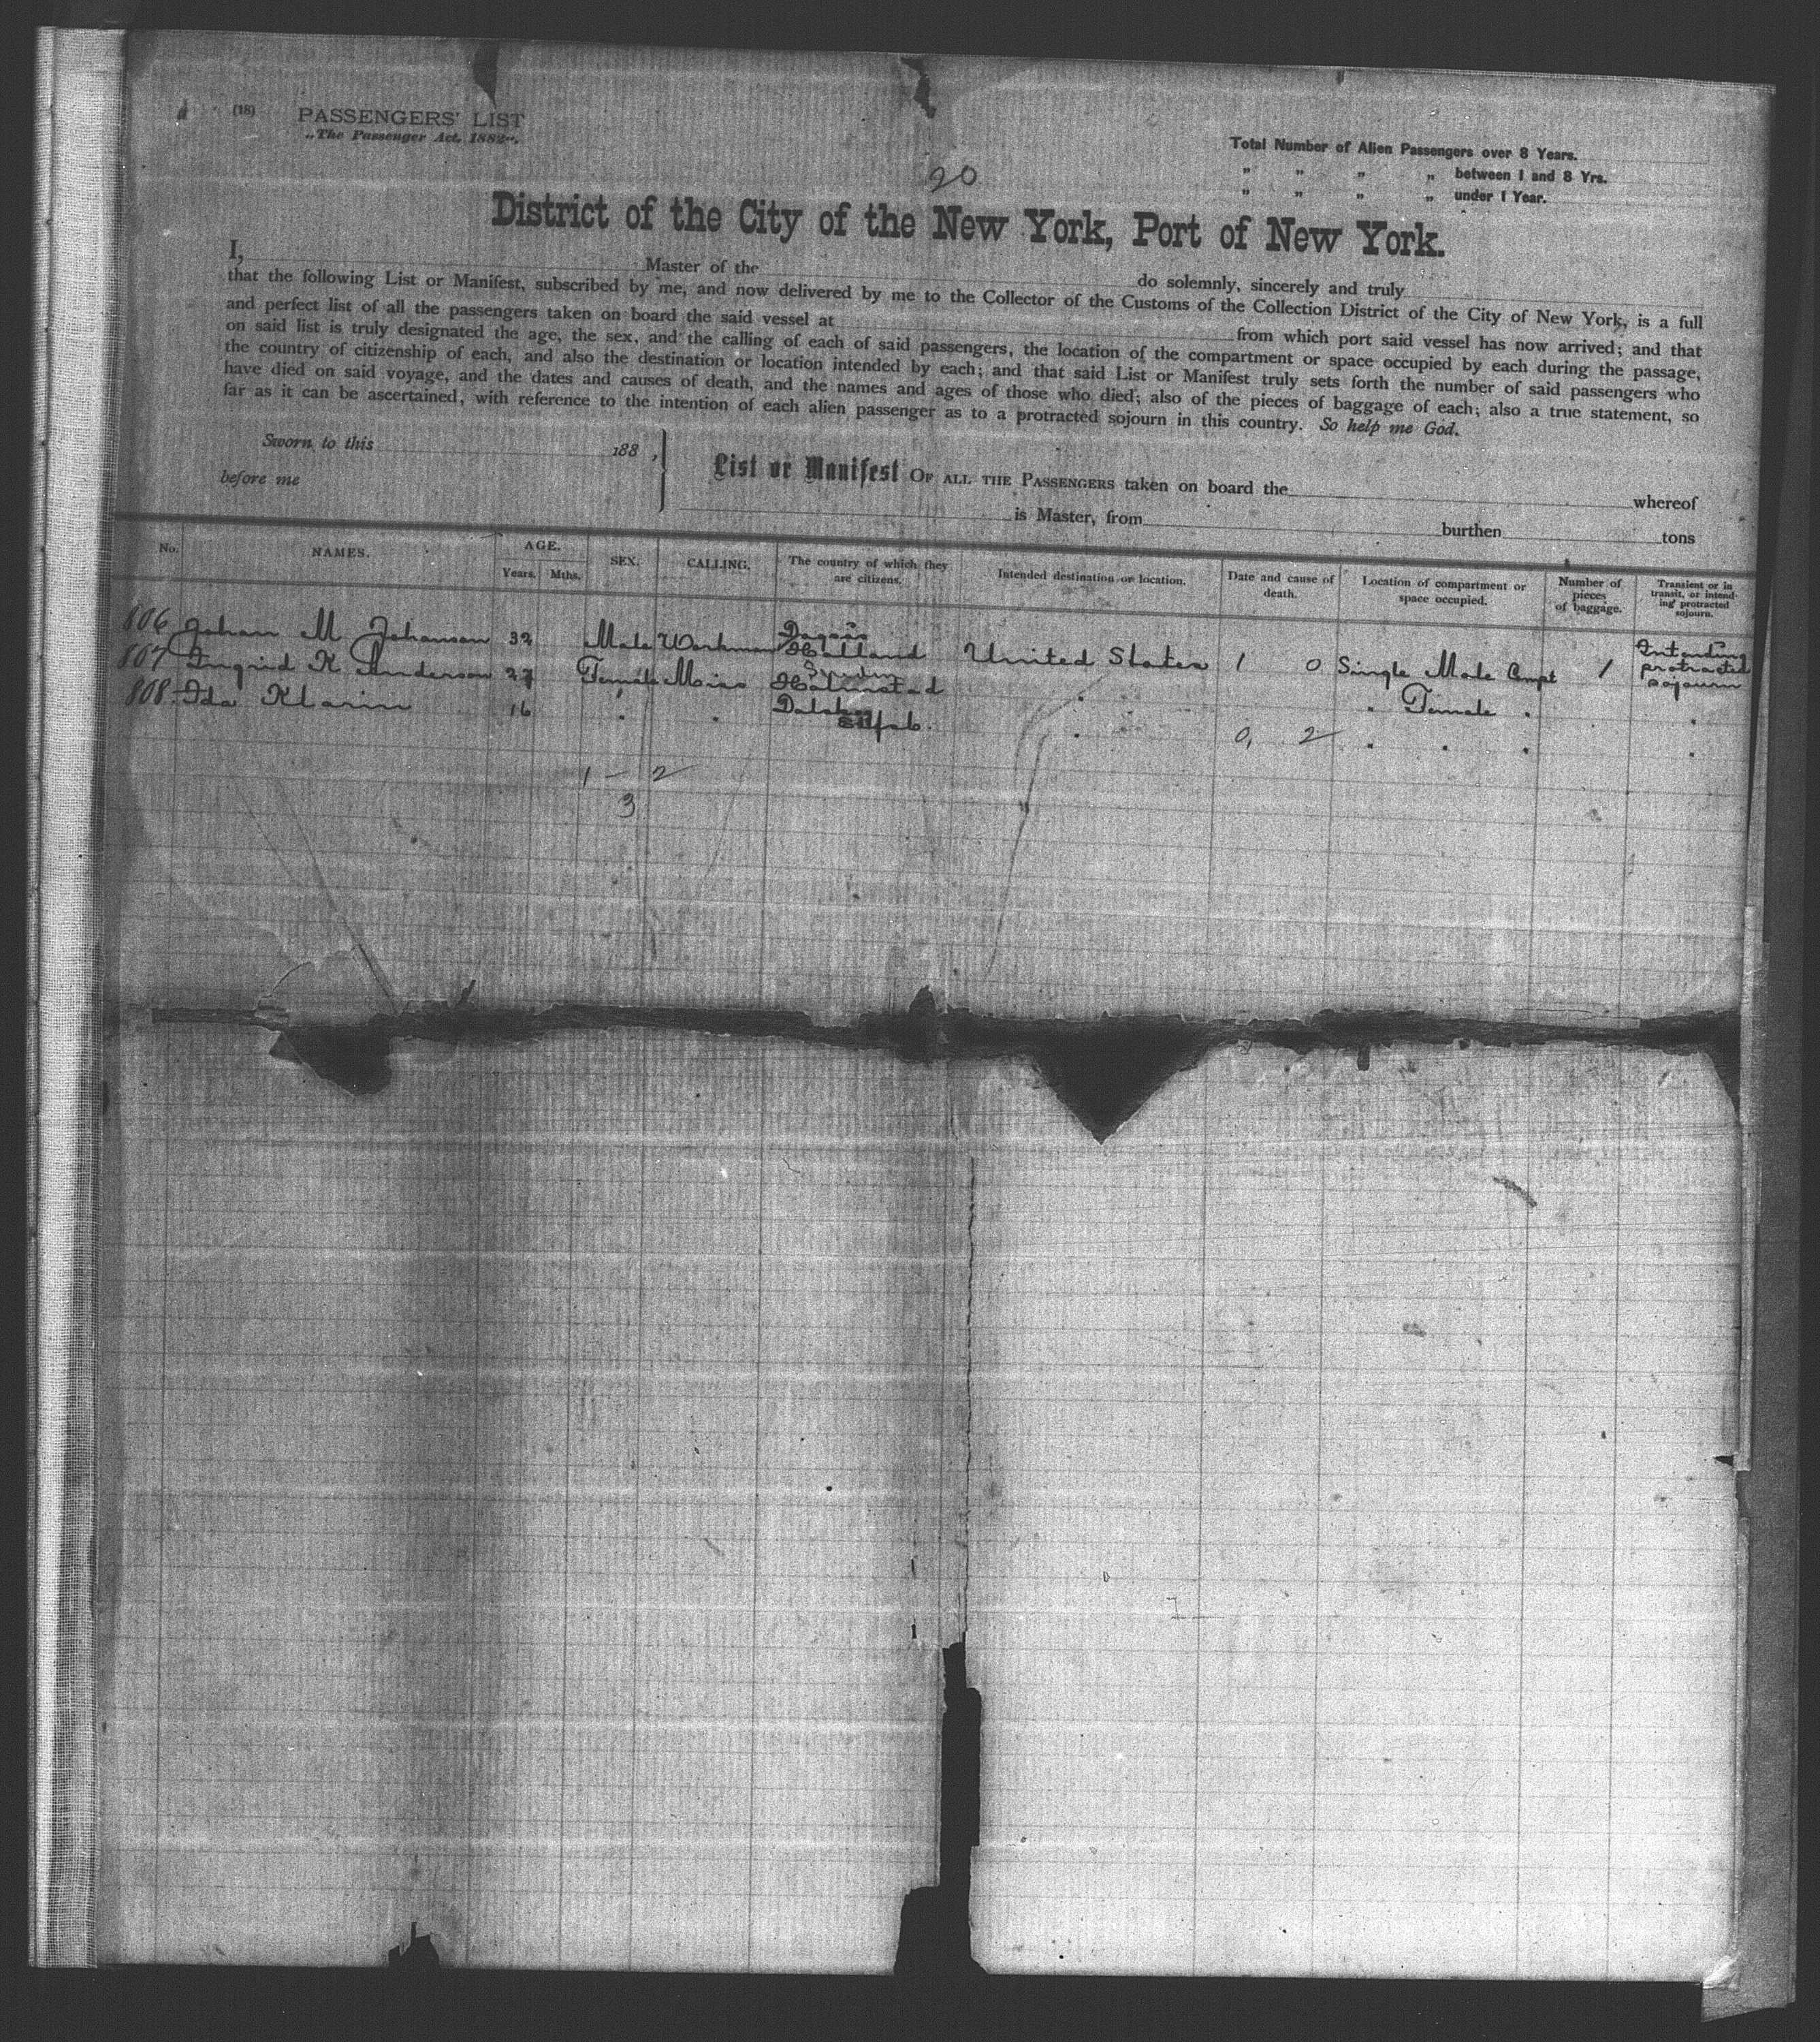 (18) PASSENGERS' LIST
„The Passenger Act, 1882".
Total Number of Alien Passengers over 8 Years.
" " " „ between 1 and 8 Yrs.
" " " „ under 1 Year.
20
District of the City of the New York, Port of New York.
I, Master of the do solemnly, sincerely and truly
that the following List or Manifest, subscribed by me, and now delivered by me to the Collector of the Customs of the Collection District of the City of New York, is a full
and perfect list of all the passengers taken on board the said vessel at from which port said vessel has now arrived; and that
on said list is truly designated the age, the sex, and the calling of each of said passengers, the location of the compartment or space occupied by each during the passage,
the country of citizenship of each, and also the destination or location intended by each; and that said List or Manifest truly sets forth the number of said passengers who
have died on said voyage, and the dates and causes of death, and the names and ages of those who died; also of the pieces of baggage of each; also a true statement, so
far as it can be ascertained, with reference to the intention of each alien passenger as to a protracted sojourn in this country. So help me God.
Sworn to this 188 ,
before me
List or Manifest OF ALL THE PASSENGERS taken on board the whereof
is Master, from burthen tons
No. NAMES. AGE. Years. Mths. SEX. CALLING. The country of which they are citizens. Intended destination or location. Date and cause of death. Location of compartment or space occupied. Number of pieces of baggage. Transient or in transit, or intending protracted sojourn.
806 Johan M Johanson 32 Male Workman Halland United States 1 0 Single Male Compt 1 Intending protracted sojourn
807 Ingrid K Anderson 27 Female Miss Halmstad " " Female " "
808 Ida Klarin 16 " " " 0, 2 " " " "
1 - 2
3